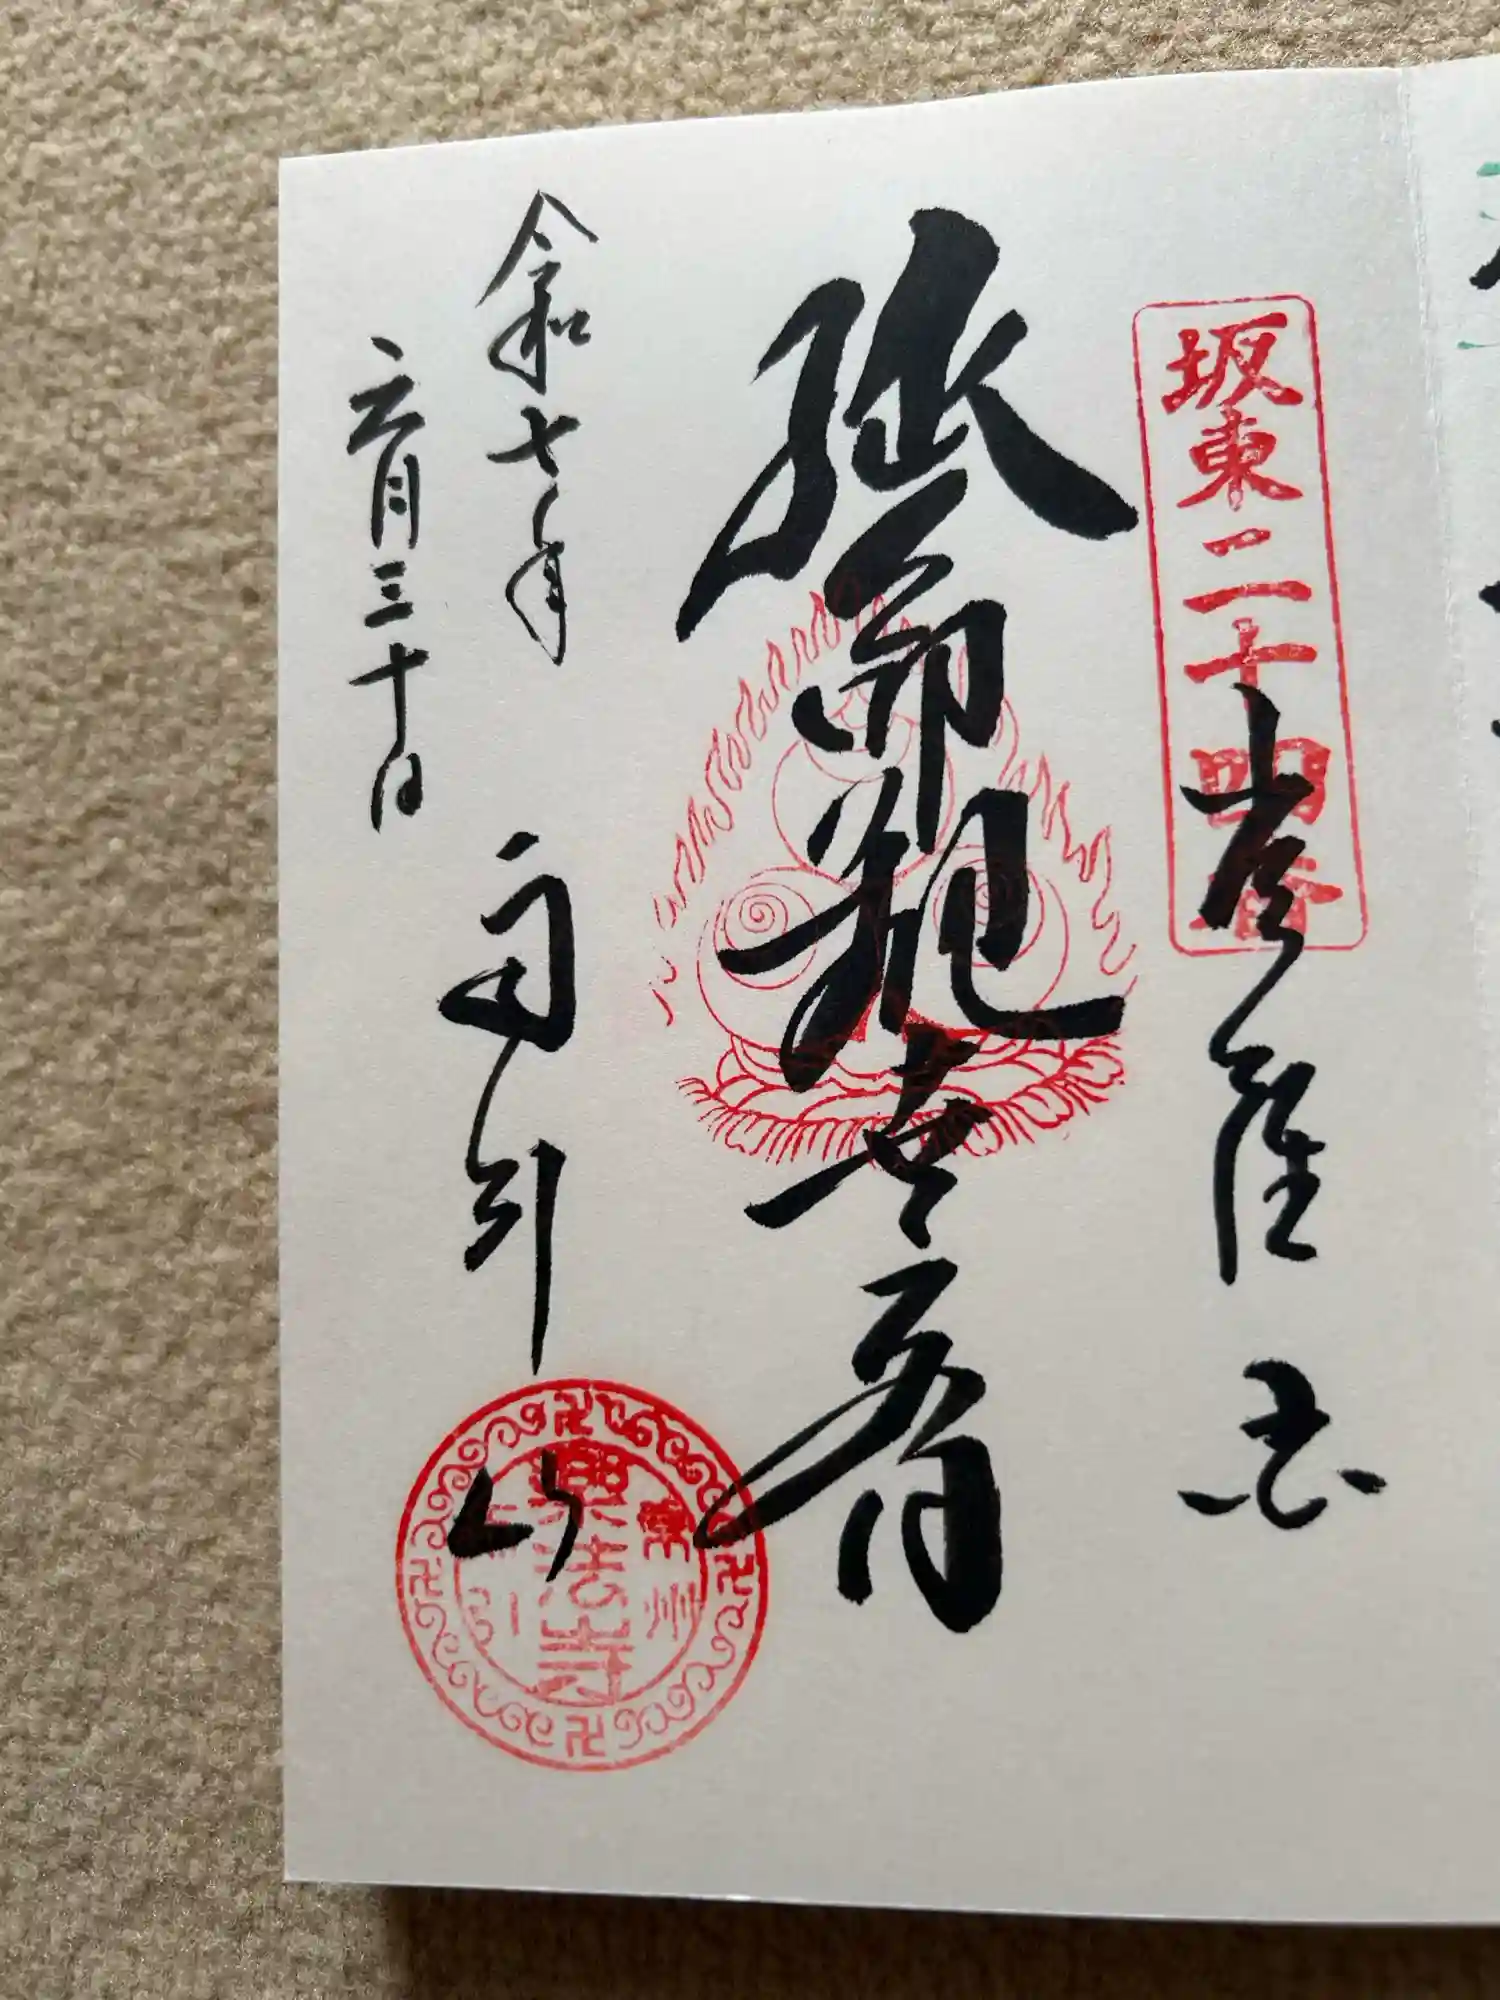 坂東二十四番
延命観世音
令和七年
六月三十日
雨引山
常州
樂法寺